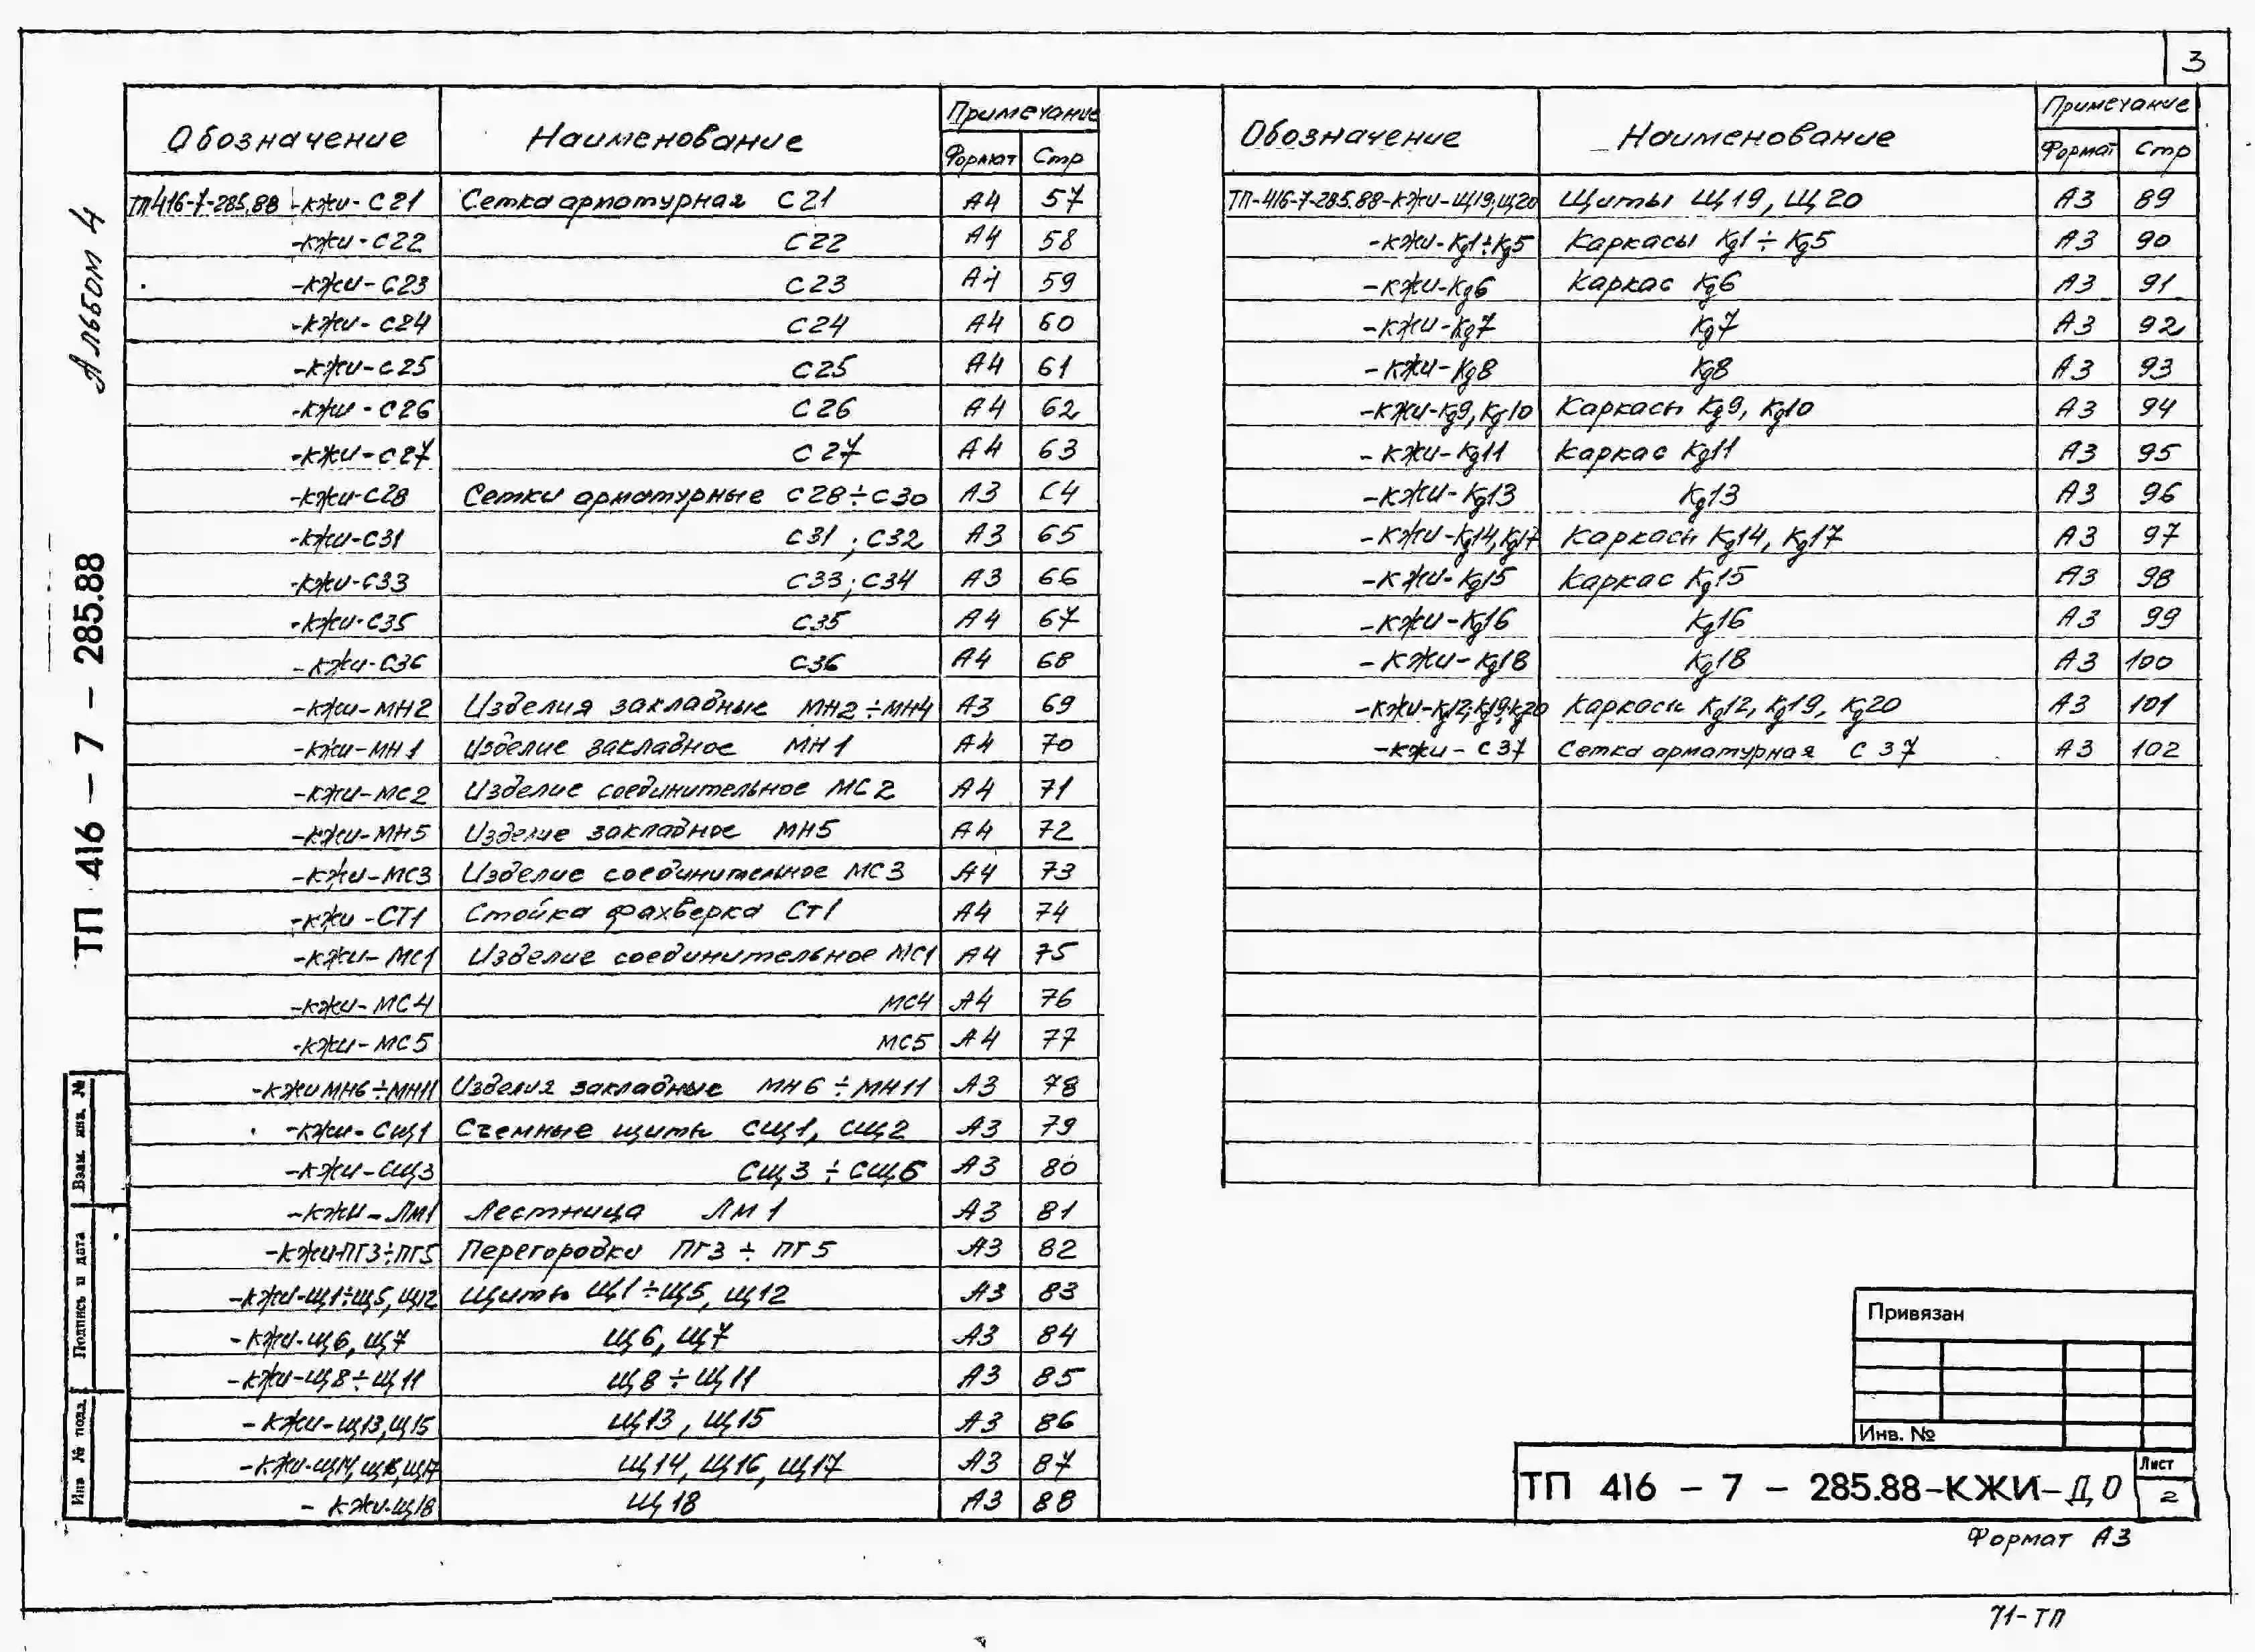 3
Альбом 4
ТП 416 – 7 – 285.88
Обозначение Наименование Примечание
Формат Стр
ТП416-7-285.88 -кжи-С21 Сетка арматурная С21 А4 57
-кжи-С22 С22 А4 58
-кжи-С23 С23 А4 59
-кжи-С24 С24 А4 60
-кжи-С25 С25 А4 61
-кжи-С26 С26 А4 62
-кжи-С27 С27 А4 63
-кжи-С28 Сетки арматурные С28÷С30 А3 С4
-кжи-С31 С31 ; С32 А3 65
-кжи-С33 С33; С34 А3 66
-кжи-С35 С35 А4 67
-кжи-С36 С36 А4 68
-кжи-МН2 Изделия закладные МН2÷МН4 А3 69
-кжи-МН1 Изделие закладное МН1 А4 70
-кжи-МС2 Изделие соединительное МС2 А4 71
-кжи-МН5 Изделие закладное МН5 А4 72
-кжи-МС3 Изделие соединительное МС3 А4 73
-кжи-СТ1 Стойка фахверка Ст1 А4 74
-кжи-МС1 Изделие соединительное МС1 А4 75
-кжи-МС4 МС4 А4 76
-кжи-МС5 МС5 А4 77
-кжи МН6÷МН11 Изделия закладные МН6÷МН11 А3 78
-кжи-СЩ1 Съемные щиты СЩ1, СЩ2 А3 79
-кжи-СЩ3 СЩ3 ÷ СЩ6 А3 80
-кжи-Лм1 Лестница Лм1 А3 81
-кжи-ПГ3÷ПГ5 Перегородки ПГ3 ÷ ПГ5 А3 82
-кжи-Щ1÷Щ5, Щ12 Щиты Щ1÷Щ5, Щ12 А3 83
-кжи-Щ6, Щ7 Щ6, Щ7 А3 84
-кжи-Щ8÷Щ11 Щ8÷Щ11 А3 85
-кжи-Щ13, Щ15 Щ13, Щ15 А3 86
-кжи-Щ14, Щ16, Щ17 Щ14, Щ16, Щ17 А3 87
- кжи-Щ18 Щ18 А3 88
Обозначение Наименование Примечание
Формат Стр
ТП-416-7-285.88-кжи-Щ19; Щ20 Щиты Щ19, Щ20 А3 89
-кжи-Кд1÷Кд5 Каркасы Кд1÷Кд5 А3 90
-кжи-Кд6 Каркас Кд6 А3 91
-кжи-Кд7 Кд7 А3 92
-кжи-Кд8 Кд8 А3 93
-кжи-Кд9, Кд10 Каркасы Кд9, Кд10 А3 94
-кжи-Кд11 Каркас Кд11 А3 95
-кжи-Кд13 Кд13 А3 96
-кжи-Кд14, Кд17 Каркасы Кд14, Кд17 А3 97
-кжи-Кд15 Каркас Кд15 А3 98
-кжи-Кд16 Кд16 А3 99
-кжи-Кд18 Кд18 А3 100
-кжи-Кд12, Кд19, Кд20 Каркасы Кд12, Кд19, Кд20 А3 101
-кжи-С37 Сетка арматурная С 37 А3 102
Взам. инв. №
Подпись и дата
Инв № подл.
Привязан
Инв. №
ТП 416 – 7 – 285.88-КЖИ-ДО
Лист
2
Формат А3
71-ТП